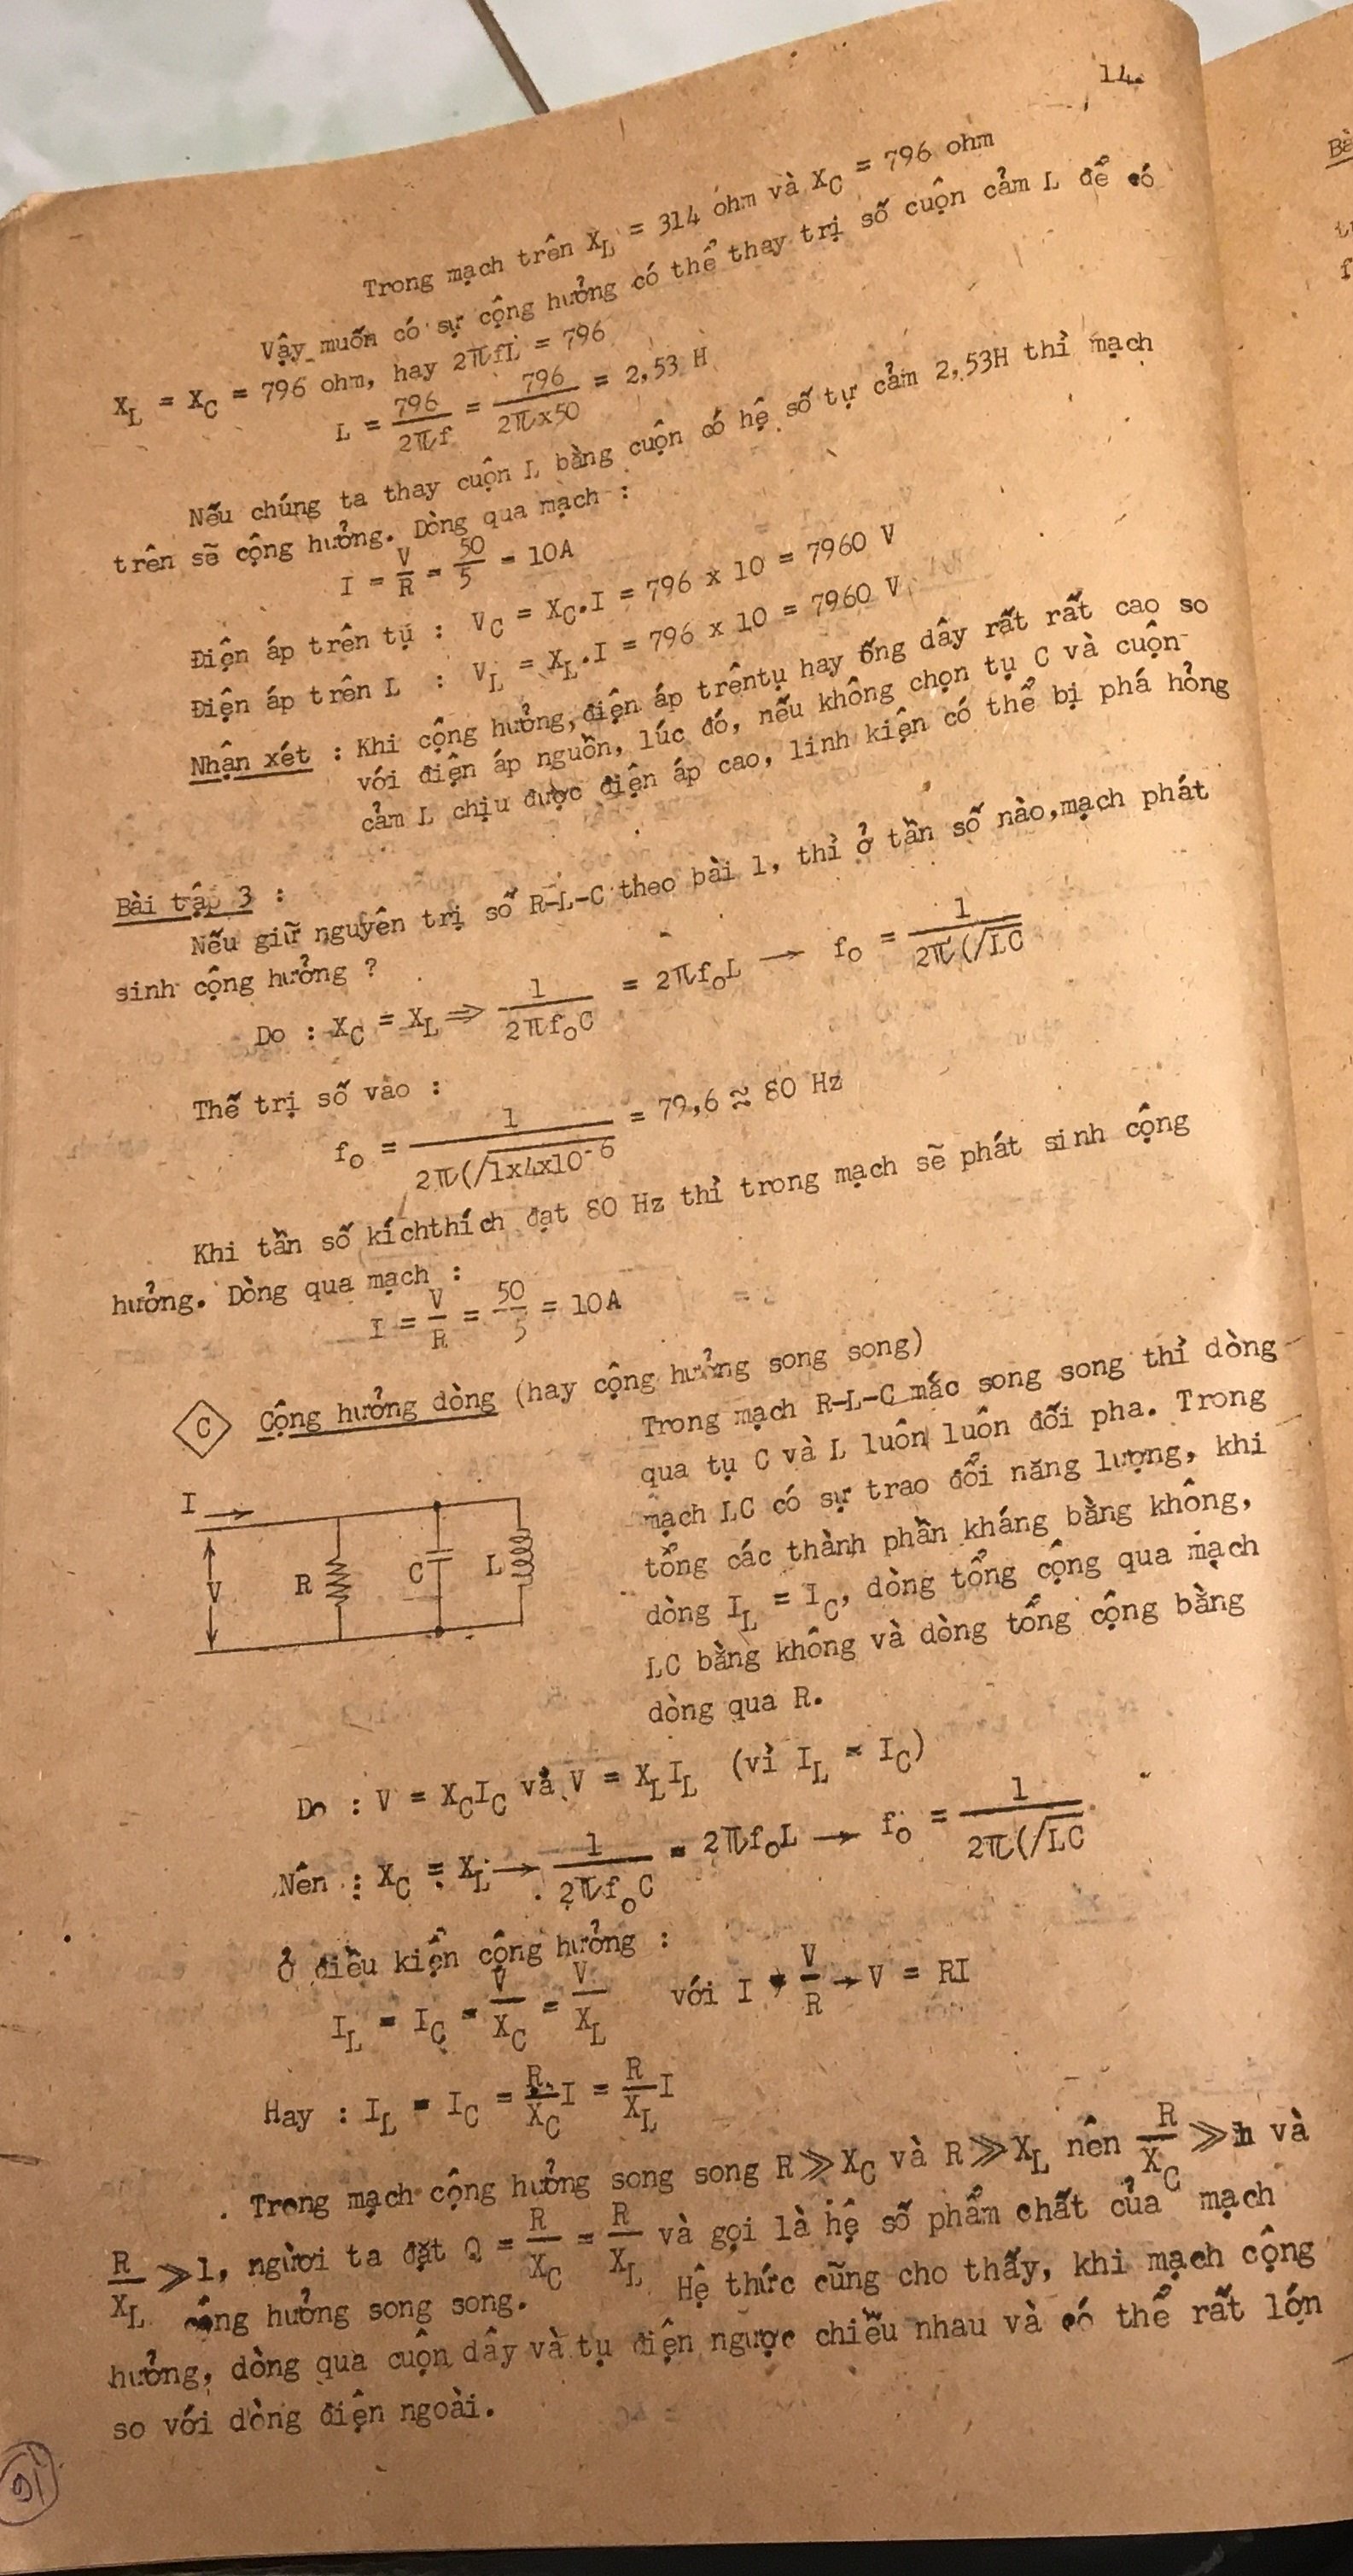 14.
Trong mạch trên X_L = 314 ohm và X_C = 796 ohm
Vậy muốn có sự cộng hưởng có thể thay trị số cuộn cảm L để có
X_L = X_C = 796 ohm, hay 2πfL = 796
L = 796/2πf = 796/2πx50 = 2,53 H
Nếu chúng ta thay cuộn L bằng cuộn có hệ số tự cảm 2,53H thì mạch
trên sẽ cộng hưởng. Dòng qua mạch :
I = V/R = 50/5 = 10A
Điện áp trên tụ : V_C = X_C.I = 796 x 10 = 7960 V
Điện áp trên L : V_L = X_L.I = 796 x 10 = 7960 V
Nhận xét : Khi cộng hưởng, điện áp trêntụ hay ống dây rất rất cao so
với điện áp nguồn, lúc đó, nếu không chọn tụ C và cuộn
cảm L chịu được điện áp cao, linh kiện có thể bị phá hỏng
Bài tập 3 :
Nếu giữ nguyên trị số R-L-C theo bài 1, thì ở tần số nào,mạch phát
sinh cộng hưởng ?
Do : X_C = X_L ⇒ 1/2πf_oC = 2πf_oL → f_o = 1/2π(√LC
Thế trị số vào :
f_o = 1/2π(√1x4x10-6 = 79,6 ≈ 80 Hz
Khi tần số kíchthích đạt 80 Hz thì trong mạch sẽ phát sinh cộng
hưởng. Dòng qua mạch :
I = V/R = 50/5 = 10A
C Cộng hưởng dòng (hay cộng hưởng song song)
Trong mạch R-L-C mắc song song thì dòng
qua tụ C và L luôn luôn đối pha. Trong
mạch LC có sự trao đổi năng lượng, khi
tổng các thành phần kháng bằng không,
dòng I_L = I_C, dòng tổng cộng qua mạch
LC bằng không và dòng tổng cộng bằng
dòng qua R.
I
V R C L
Do : V = X_CI_C và V = X_LI_L (vì I_L = I_C)
Nên : X_C = X_L → 1/2πf_oC = 2πf_oL → f_o = 1/2π(√LC
Ở điều kiện cộng hưởng :
I_L = I_C = V/X_C = V/X_L với I = V/R → V = RI
Hay : I_L = I_C = R/X_C I = R/X_L I
Trong mạch cộng hưởng song song R ≫ X_C và R ≫ X_L nên R/X_C ≫ 1 và
R/X_L ≫ 1, người ta đặt Q = R/X_C = R/X_L và gọi là hệ số phẩm chất của mạch
cộng hưởng song song. Hệ thức cũng cho thấy, khi mạch cộng
hưởng, dòng qua cuộn dây và tụ điện ngược chiều nhau và có thể rất lớn
so với dòng điện ngoài.